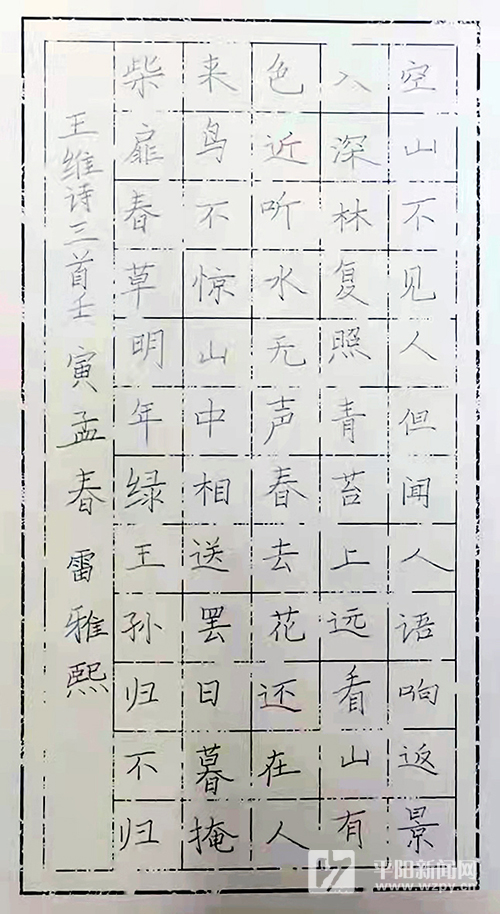 空山不见人但闻人语响返景
入深林复照青苔上远看山有
色近听水无声春去花还在人
来鸟不惊山中相送罢日暮掩
柴扉春草明年绿王孙归不归
王维诗三首壬寅孟春雷雅熙
平阳新闻网
www.wzpy.cn